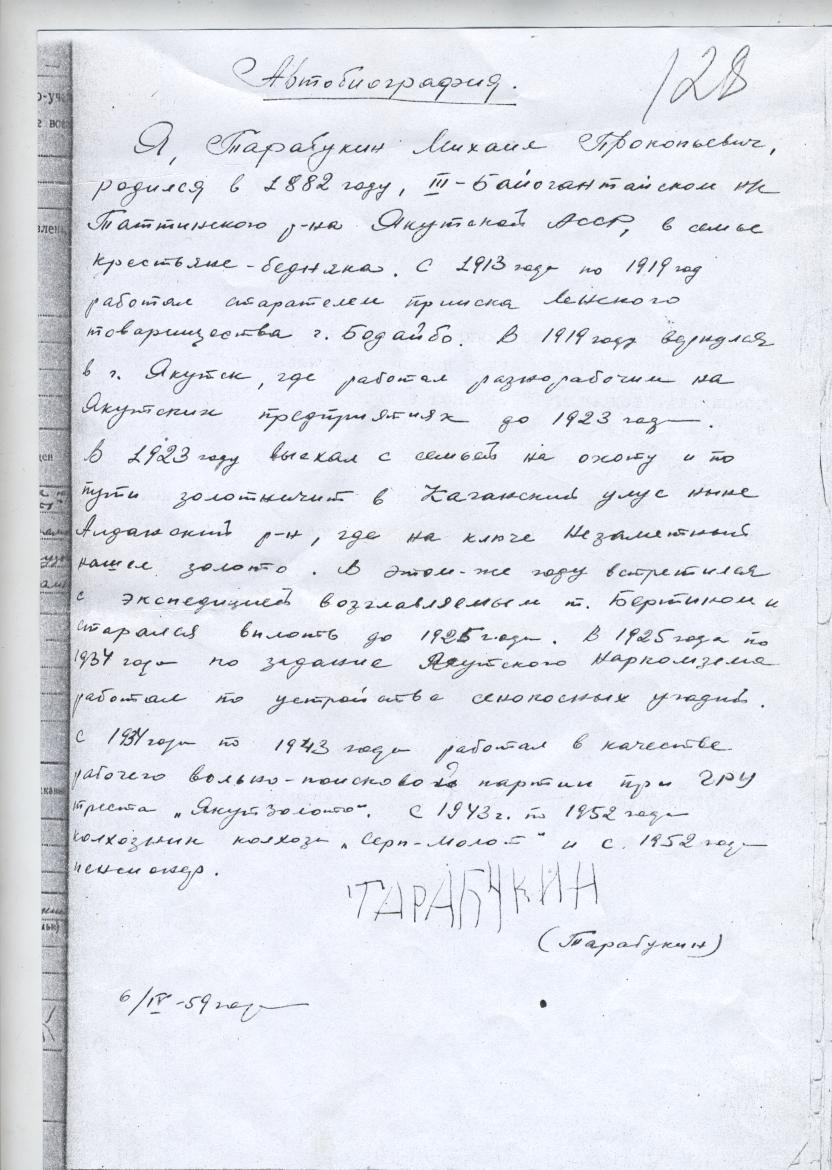 Автобиография.
128
Я, Тарабукин Михаил Прокопьевич,
родился в 1882 году, III-Байогантайском
Таттинского р-на Якутской АССР, в семье
крестьяне-бедняка. С 1913 года по 1919 год
работал старателем прииска Ленского
товарищества г. Бодайбо. В 1919 году вернулся
в г. Якутск, где работал разнорабочим на
Якутских предприятиях до 1923 года.
В 1923 году выехал с семьей на охоту и по
пути золотничит в Каганский улус ныне
Алданский р-н, где на ключе Незаметный
нашел золото. В этом-же году встретился
с экспедицией возглавляемым т. Бертином и
старался вплоть до 1925 года. В 1925 года по
1934 года по задание Якутского Наркомзема
работал по устройства сенокосных угодий.
С 1934 года по 1943 года работал в качестве
рабочего вольно-поисковой партии при ГРУ
треста „Якутзолото". С 1943 г. по 1952 года
колхозник колхоза „Серп-Молот" и с 1952 года
пенсионер.
ТАРАБУКИН
(Тарабукин)
6/IV-59 года